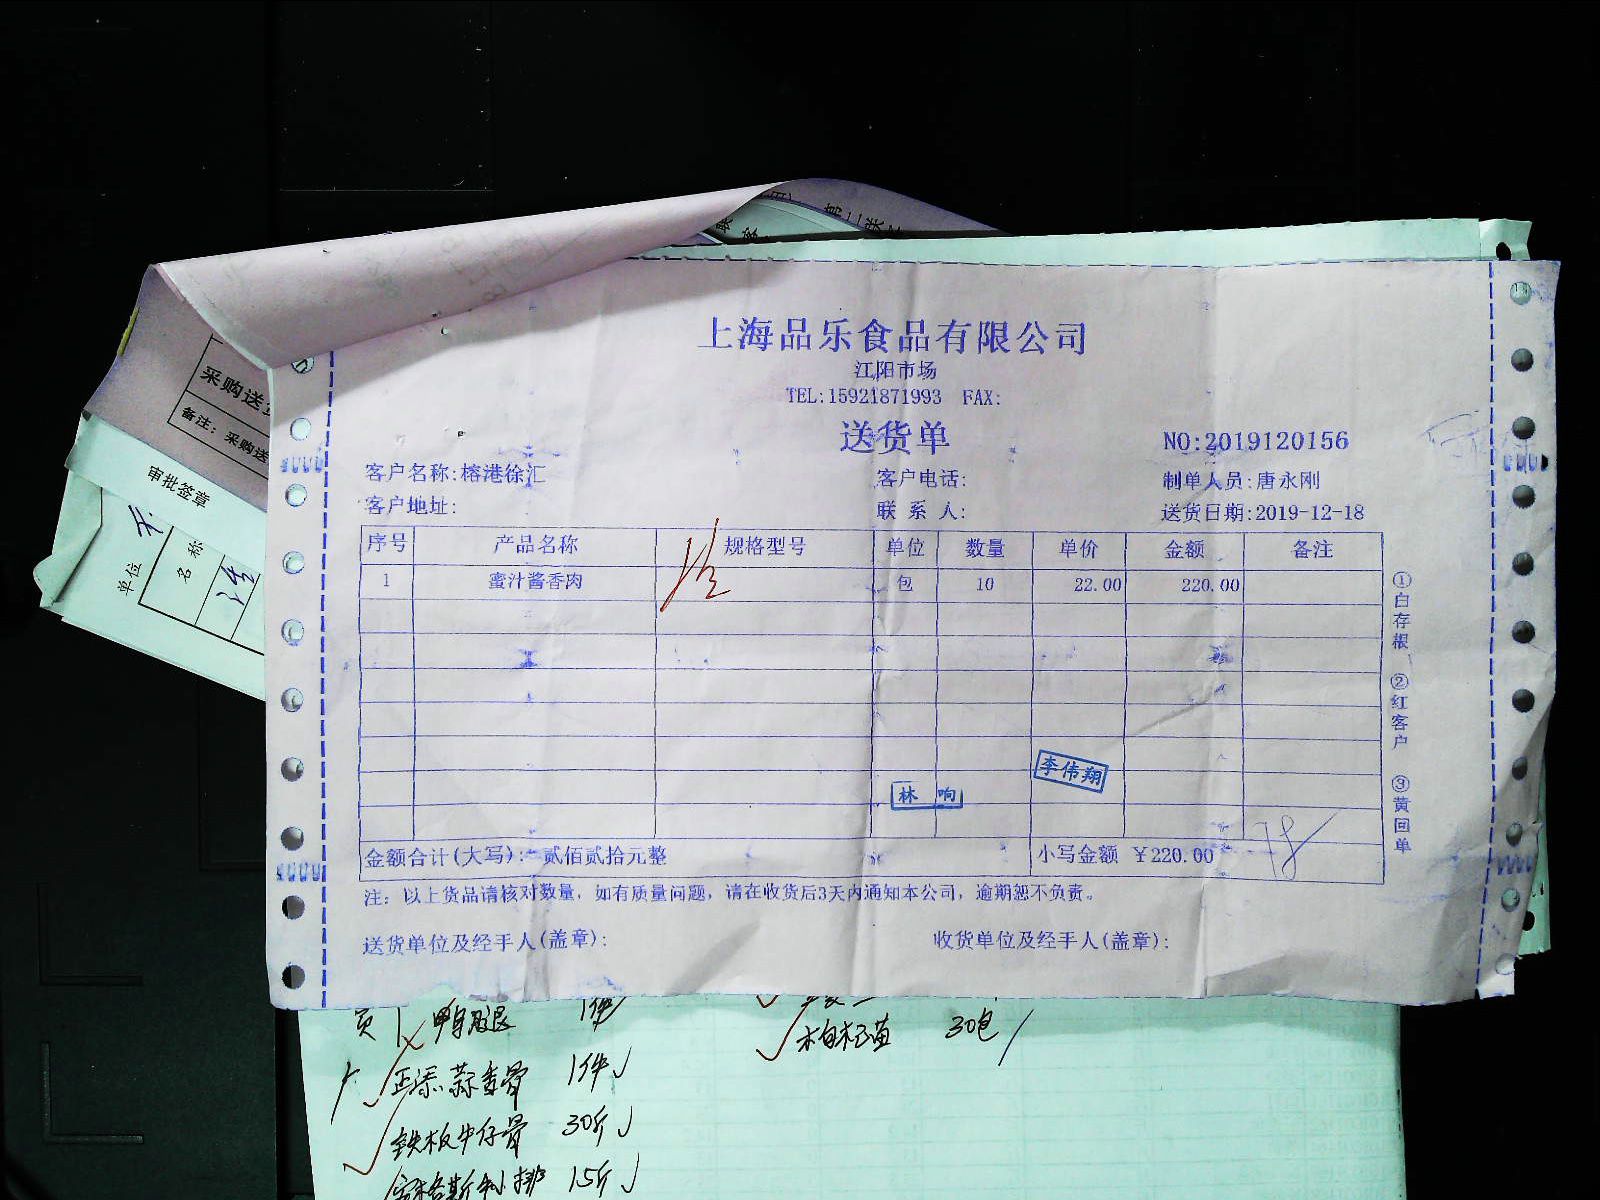 第二联
采购送
备注：采购送
审批签章
单位
名称
上海品乐食品有限公司
江阳市场
TEL:15921871993 FAX:
送货单
NO:2019120156
客户名称:榕港徐汇 客户电话: 制单人员:唐永刚
客户地址: 联系人: 送货日期:2019-12-18
序号 产品名称 规格型号 单位 数量 单价 金额 备注
1 蜜汁酱香肉 包 10 22.00 220.00
李伟翔
林响
金额合计(大写): 贰佰贰拾元整 小写金额 ￥220.00
注：以上货品请核对数量，如有质量问题，请在收货后3天内通知本公司，逾期恕不负责。
送货单位及经手人(盖章): 收货单位及经手人(盖章):
①白存根 ②红客户 ③黄回单
鸭腿 1件
蒜香骨 1件
铁板牛仔骨 30斤
15斤
30包